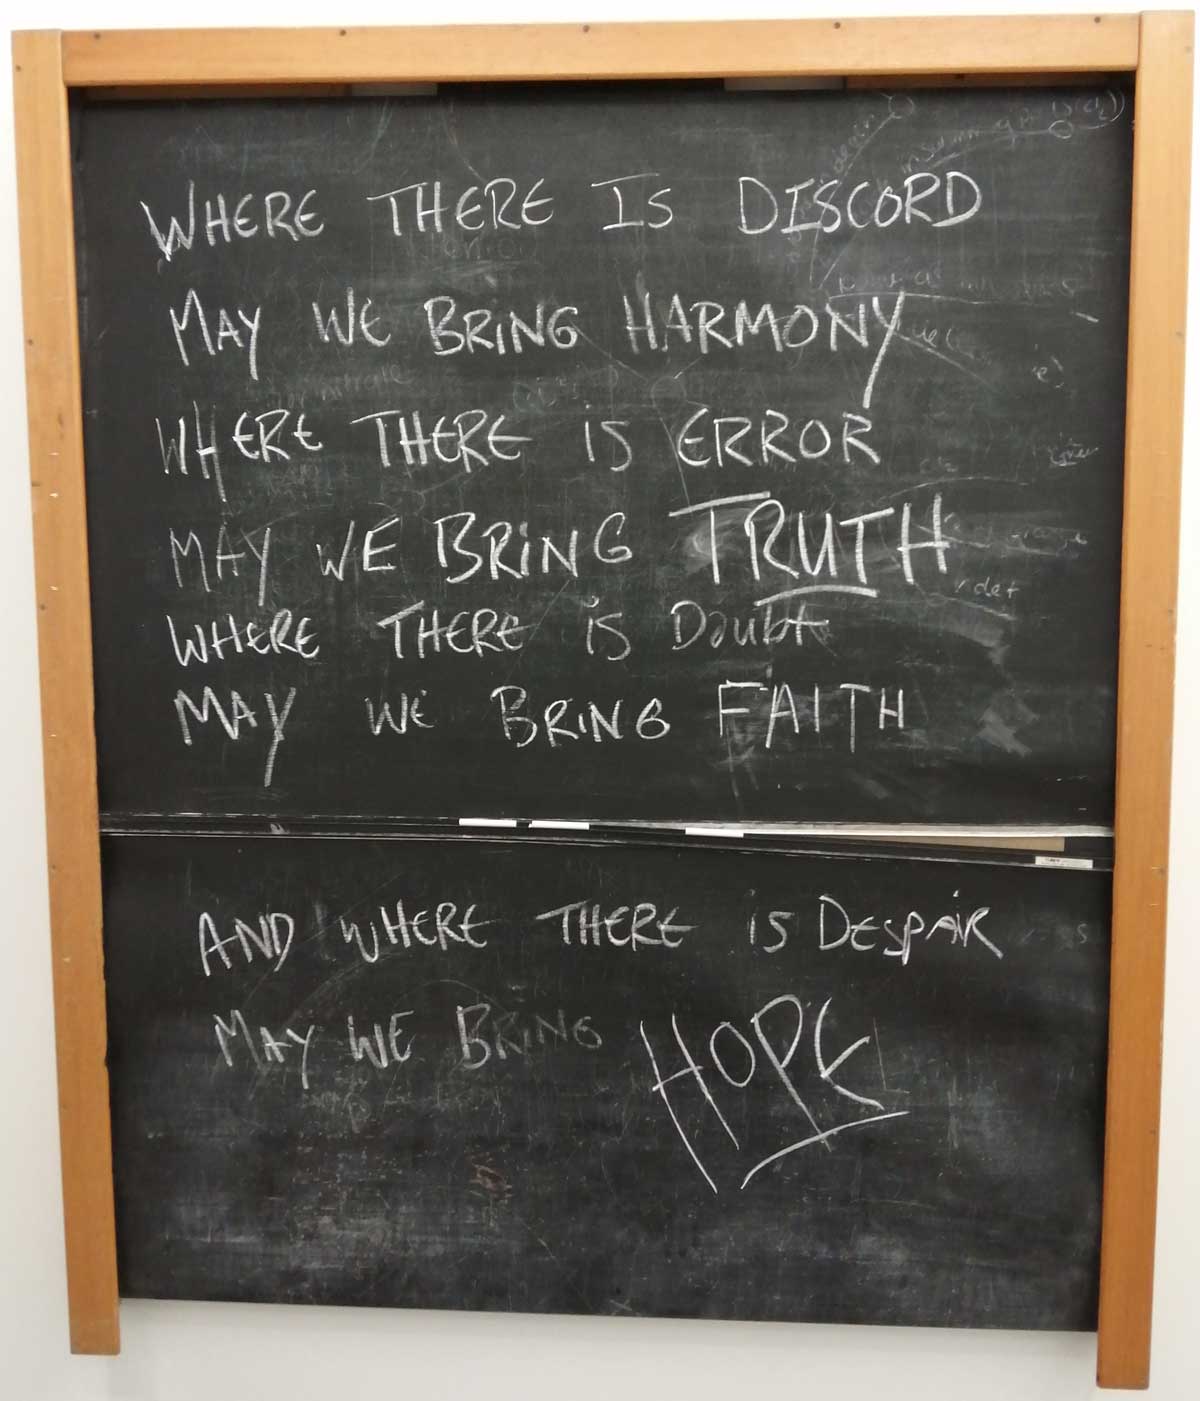 WHERE THERE IS DISCORD
MAY WE BRING HARMONY
WHERE THERE IS ERROR
MAY WE BRING TRUTH
WHERE THERE IS Doubt
MAY WE BRING FAITH
AND WHERE THERE IS DESPAIR
MAY WE BRING HOPE